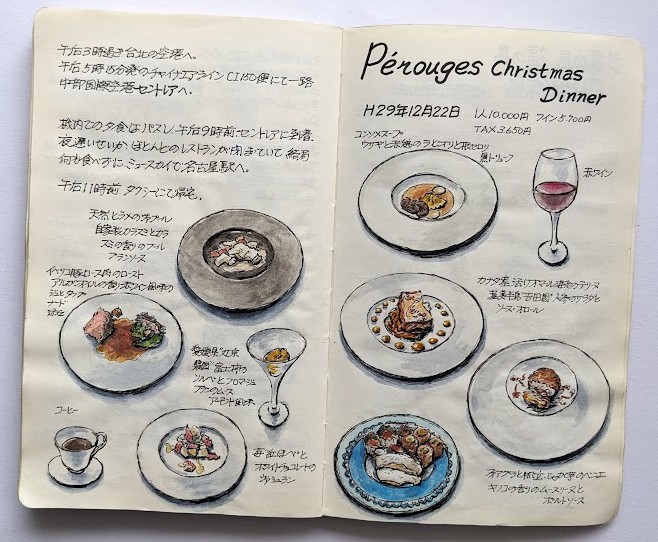 午后3時過ぎ台北の空港へ。
午后5時15分発のチャイナエアライン CI150便にて一路
中部国際空港セントレアへ。
機内での夕食はパスし、午后9時前、セントレアに到着、
夜遅いせいか ほとんどのレストランが閉まていて 結局
何も食べずに、ミュースカイで名古屋駅へ。
午后11時前 タクシーにて帰宅。
天然ヒラメの
自家製カラスミと
スミの香りの
ブランソース
イベリコ豚ロース肉のロースト
アルガンオイルの香り 赤ワイン風味の
愛媛県
富士柿の
ソルベとフロマージュ
ブランのムース
コーヒー
苺
ホワイトチョコレートの
Pérouges Christmas
Dinner
H29年12月22日 1人10.000円 ワイン5.700円
TAX 3.650円
コンソメスープ
ウサギと赤鶏のラビオリと根セロリ
黒トリュフ
赤ワイン
カナダ産 活けオマール海老のテリーヌ
渥美半島"吉田園" のサラダと
ソース・オロール
フォアグラと帆立、じゃが芋のベニエ
キノコの香りのムースリーヌと
ポルトソース